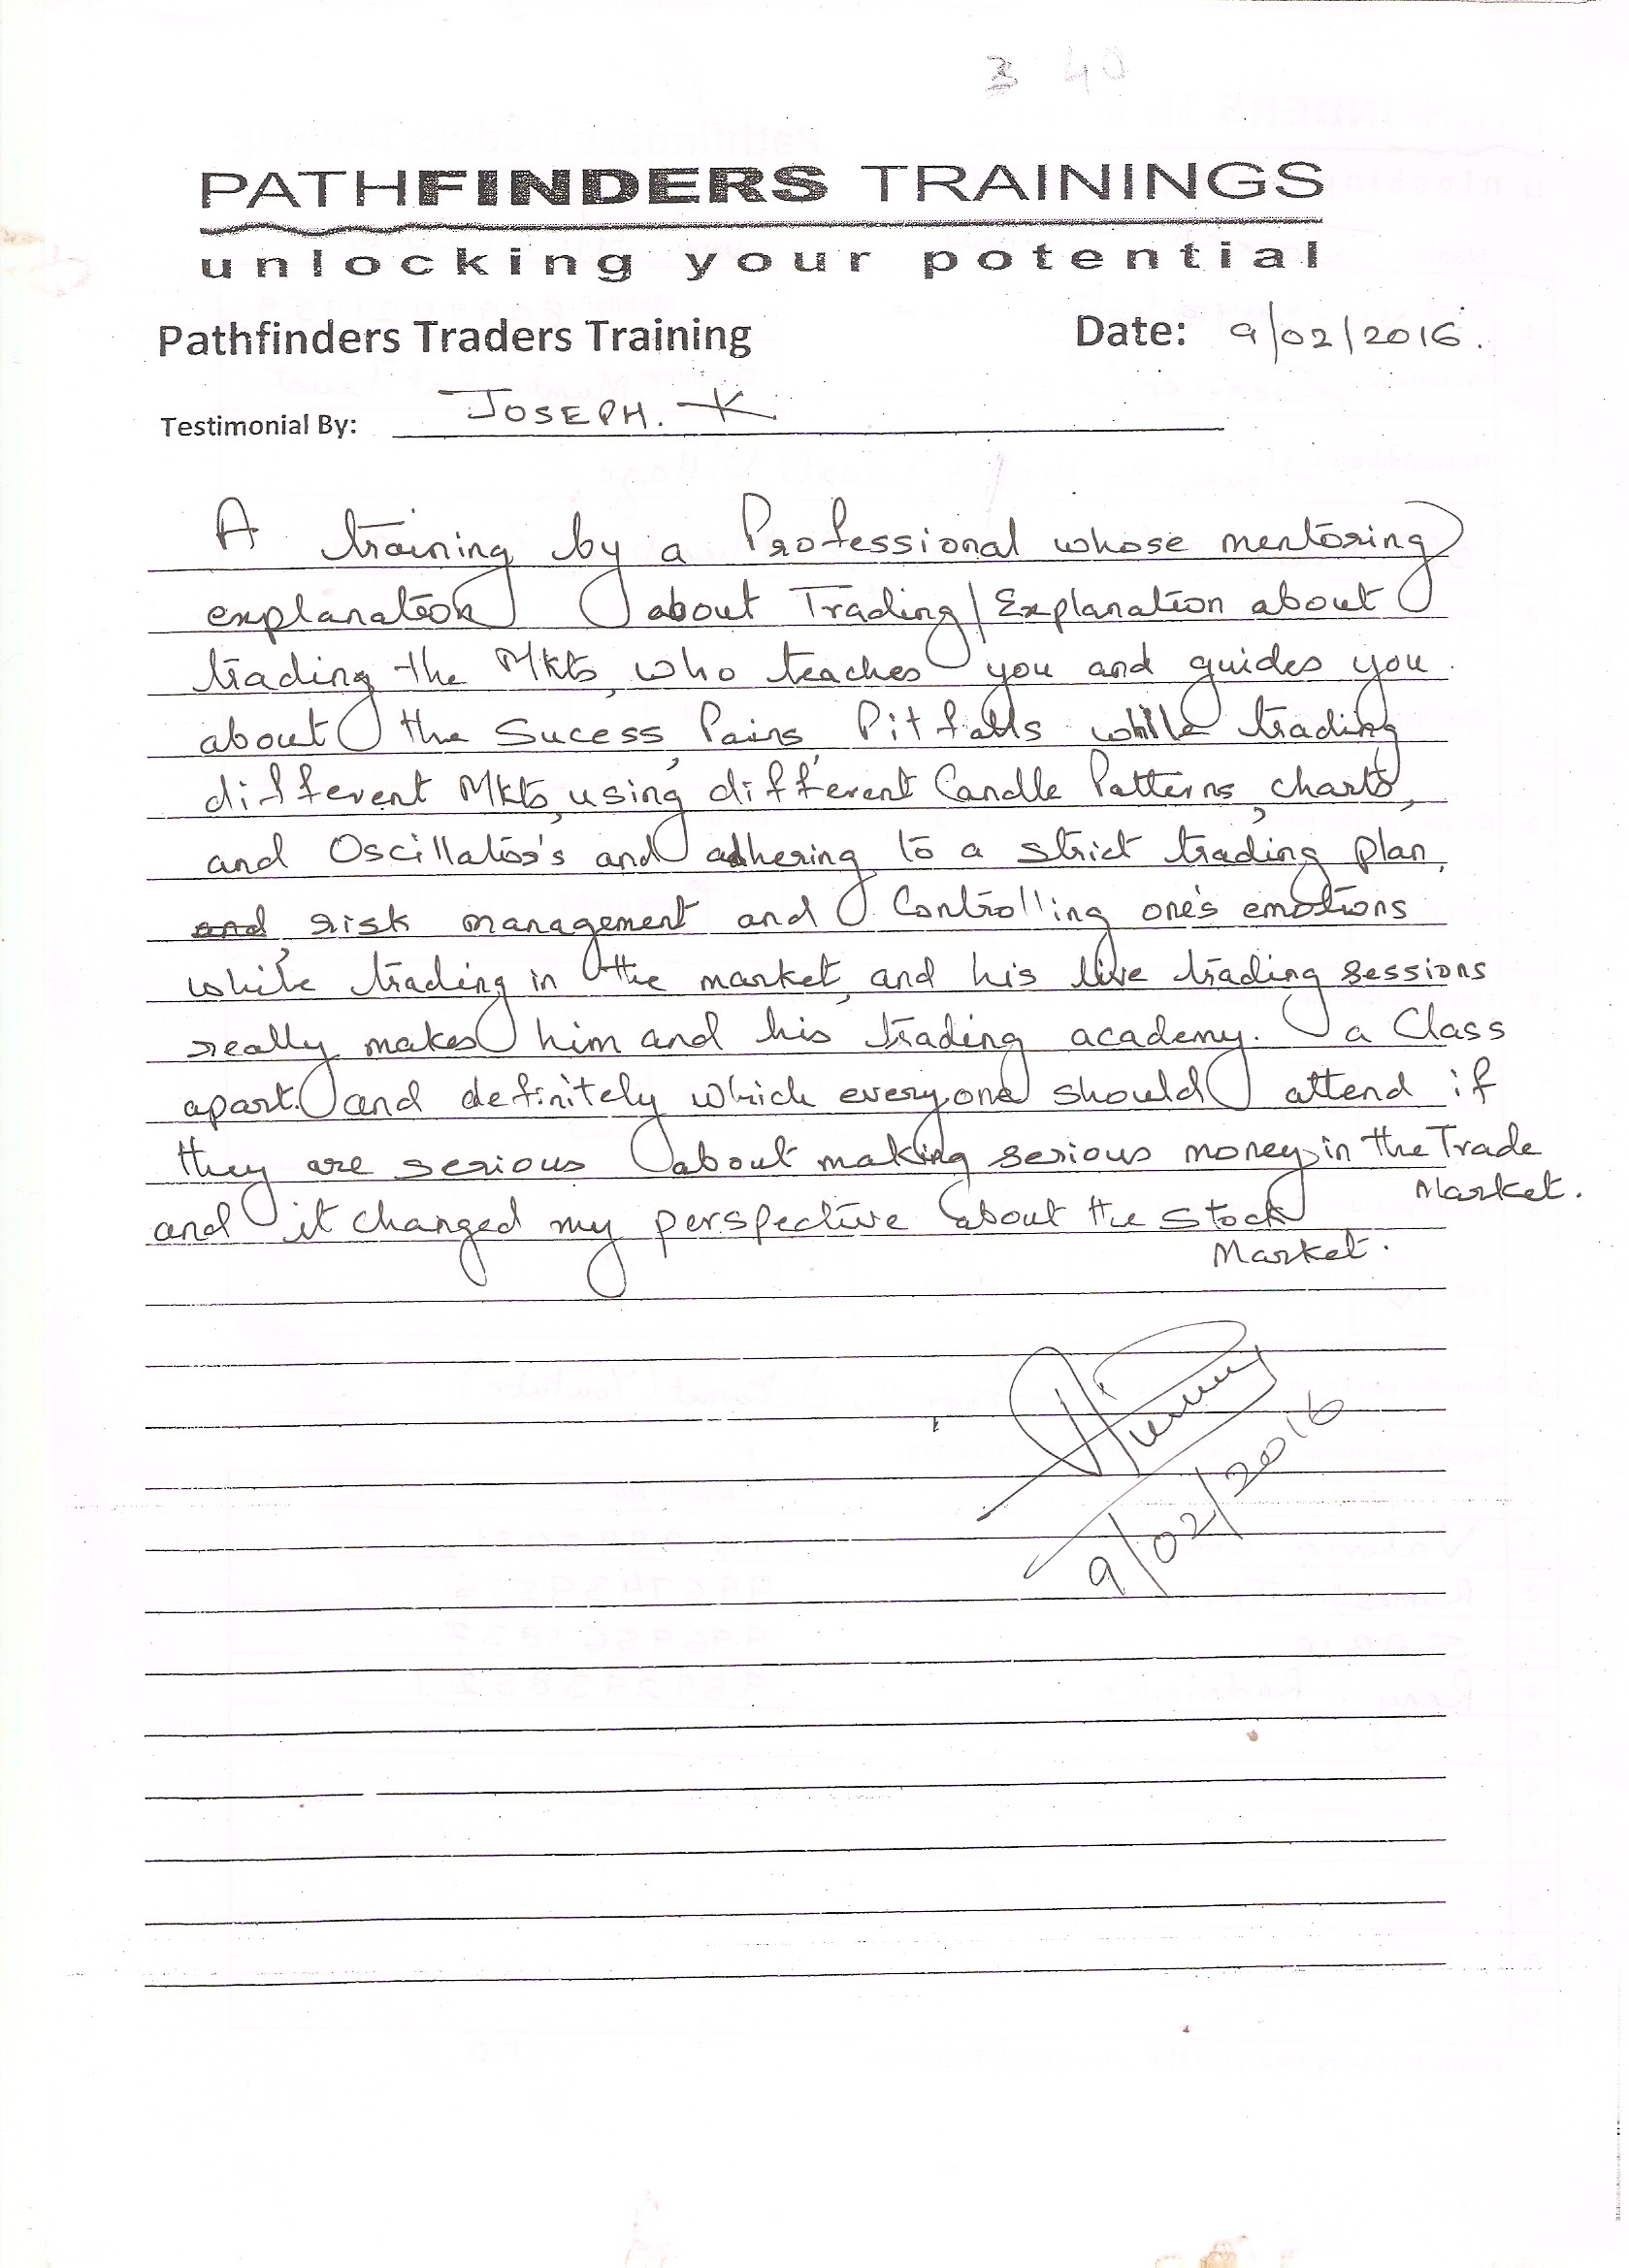 3 40
PATHFINDERS TRAININGS
unlocking your potential
Pathfinders Traders Training Date: 9/02/2016.
Testimonial By: JOSEPH. K
A training by a Professional whose mentoring
explanation about Trading/Explanation about
trading the Mkts, who teaches you and guides you
about the Sucess, Pains, Pitfalls while trading
different Mkts, using different Candle Patterns, charts,
and Oscillator's and adhering to a strict trading plan,
and, risk management and Controlling one's emotions
while trading in the market, and his live trading sessions
really makes him and his trading academy. a Class
apart. and definitely which everyone should attend if
they are serious about making serious money in the Trade
Market.
and it changed my perspective about the stock
Market.
9/02/2016